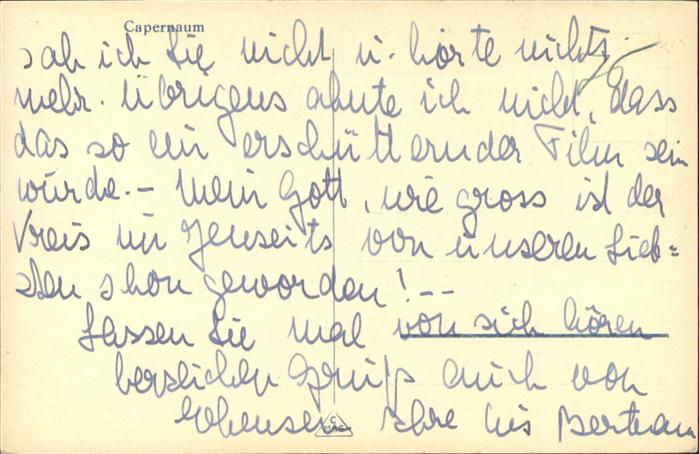 Capernaum
sah ich Sie nicht u. hörte nichts
mehr. Übrigens ahnte ich nicht, dass
das so ein erschütternder Film sein
würde. – Mein Gott, wie gross ist der
Kreis im Jenseits von unseren Lieb=
sten shon geworden! --
Lassen Sie mal von sich hören
herzlichen Gruß auch von
Ihre Lis